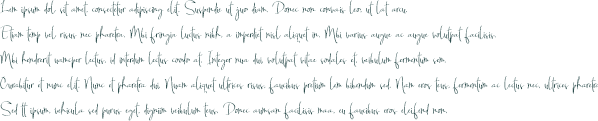 Lorem ipsum dol sit amet, consectetur adipiscing elit. Suspendis ut justo diam. Donec non convallis leo, ut lat arcu.
Etiam temp vel risus nec pharetra. Morbi fringilla lectus nibh, a imperdiet nisl aliquet in. Morbi varius augue ac augue volutpat facilisis.
Morbi hendrerit semper lectus, id interdum lectus condo at. Integer nua duis volutpat vitae sodales et, vestibulum fermentum sem.
Curabitur et nunc elit. Nunc et pharetra dui. Nuam aliquet ultrices risus, faucibus pretium lem bibendum sed. Nam eros tess, fermentum ac lectus nec, ultrices pharetra
Sed tt ipsum, vehicula sed purus eget, dignissim vestibulum tess. Donec accumsan facilisis maa, eu faucibus eros eleifend non.